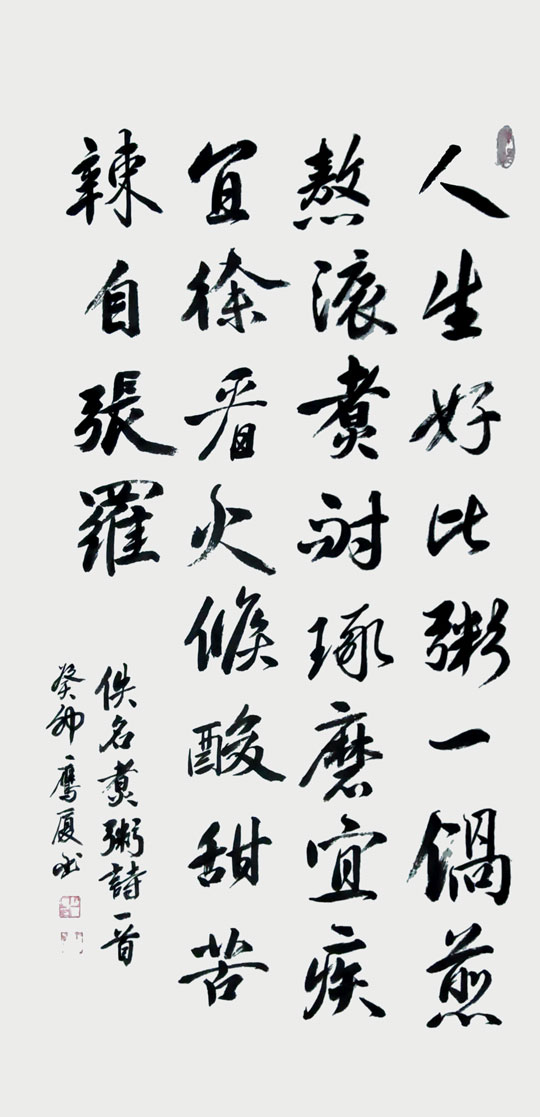 人生好比粥一鍋煎
熬滚煮耐琢磨宜疾
宜徐看火候酸甜苦
辣自張羅
佚名煮粥詩一首
癸卯一鷹厦书